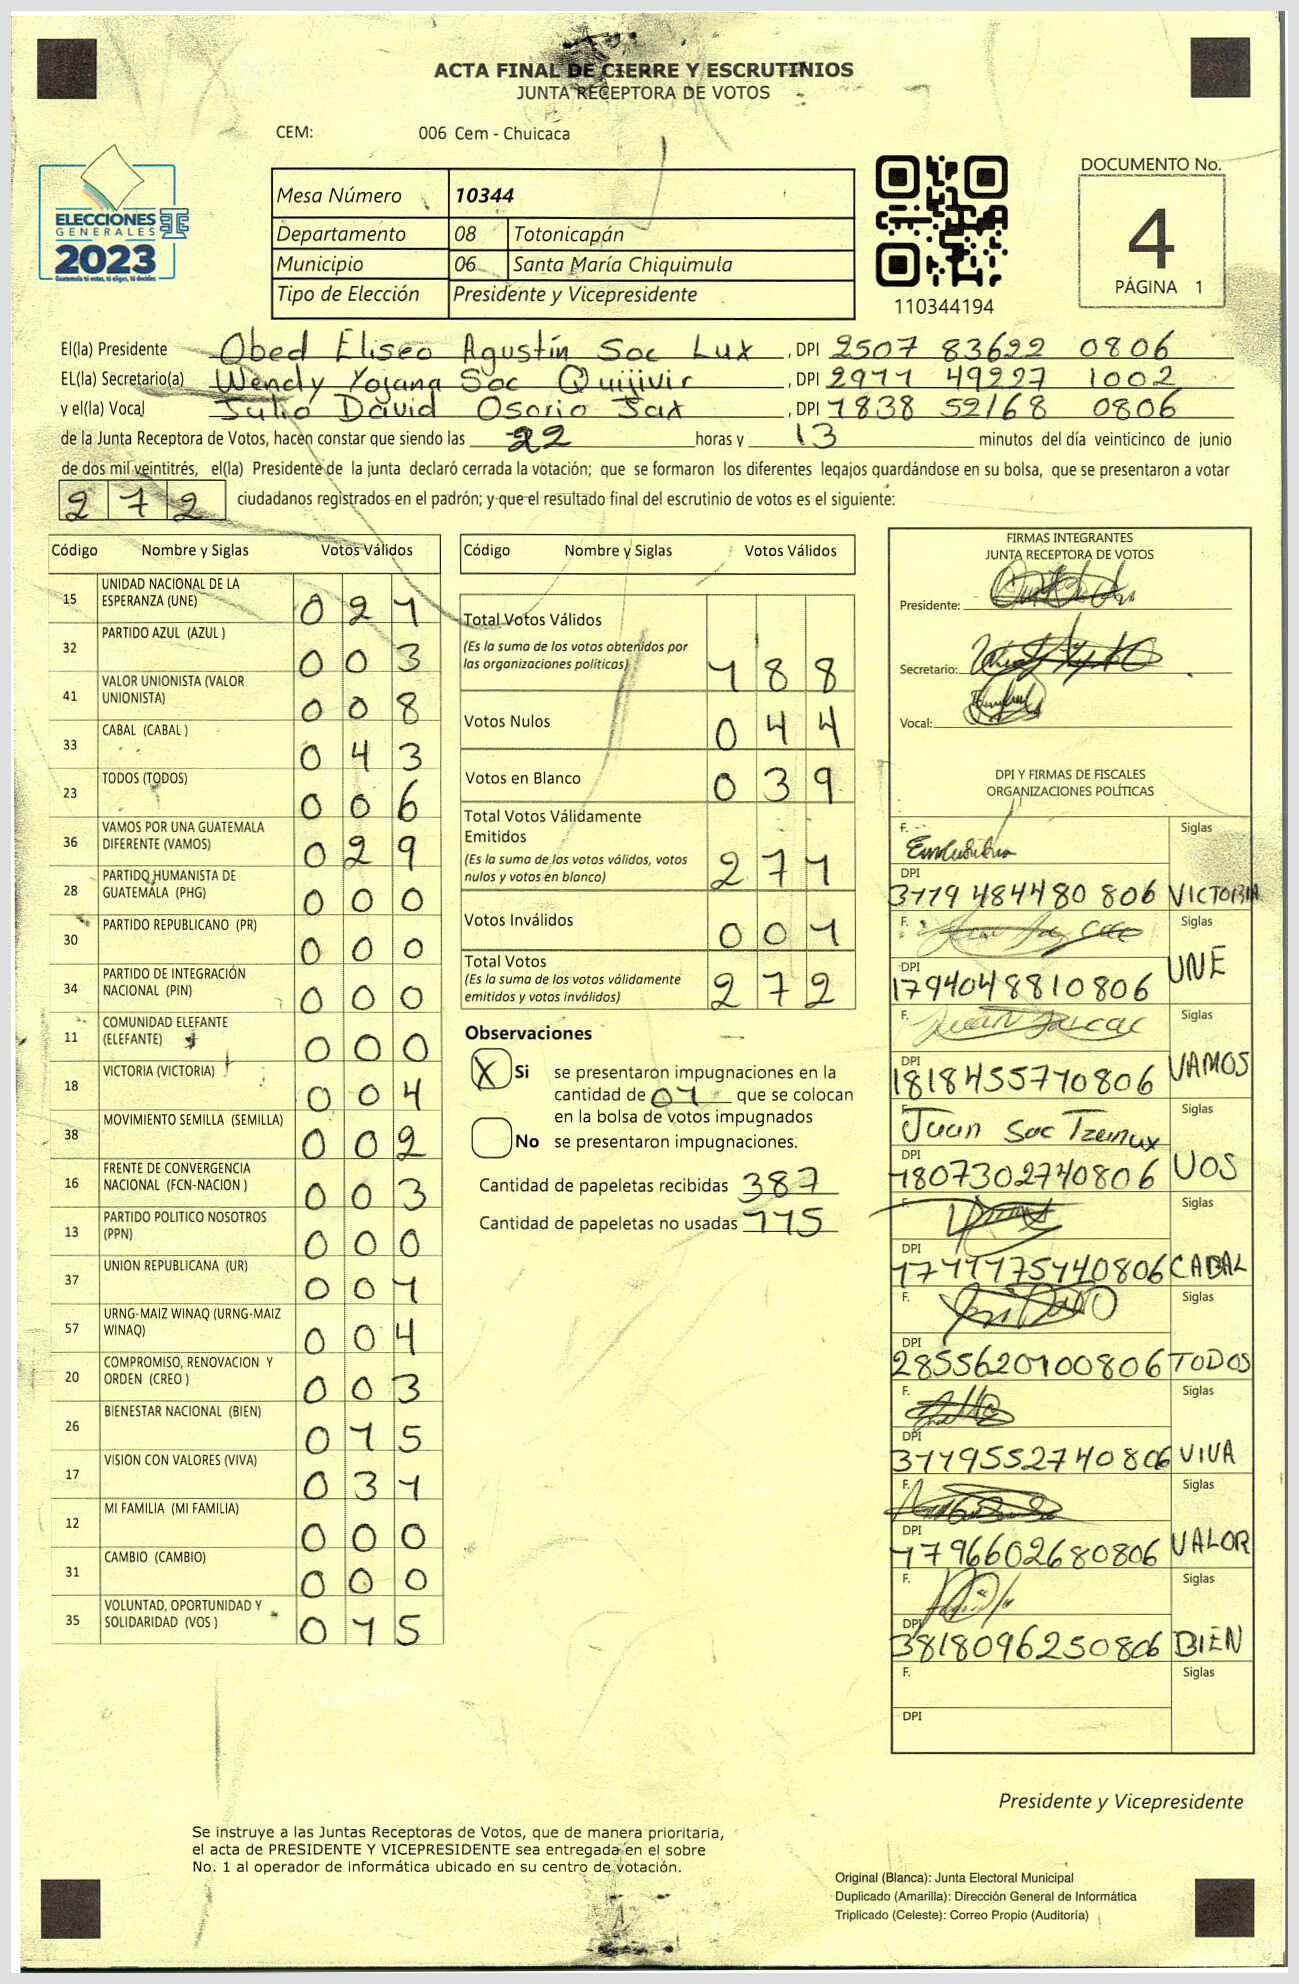 ACTA FINAL DE CIERRE Y ESCRUTINIOS
JUNTA RECEPTORA DE VOTOS
CEM: 006 Cem - Chuicaca
ELECCIONES
GENERALES
2023
Guatemala tú votas, tú eliges, tú decides
Mesa Número 10344
Departamento 08 Totonicapán
Municipio 06 Santa María Chiquimula
Tipo de Elección Presidente y Vicepresidente
110344194
DOCUMENTO No.
4
PÁGINA 1
El(la) Presidente Obed Eliseo Agustín Soc Lux, DPI 2507 83622 0806
EL(la) Secretario(a) Wendy Yojana Soc Quijivir, DPI 2971 49227 1002
y el(la) Vocal Julio David Osorio Sax, DPI 1838 52168 0806
de la Junta Receptora de Votos, hacen constar que siendo las 22 horas y 13 minutos del día veinticinco de junio
de dos mil veintitrés, el(la) Presidente de la junta declaró cerrada la votación; que se formaron los diferentes legajos guardándose en su bolsa, que se presentaron a votar
272 ciudadanos registrados en el padrón; y que el resultado final del escrutinio de votos es el siguiente:
Código Nombre y Siglas Votos Válidos
15 UNIDAD NACIONAL DE LA ESPERANZA (UNE) 0 2 1
32 PARTIDO AZUL (AZUL ) 0 0 3
41 VALOR UNIONISTA (VALOR UNIONISTA) 0 0 8
33 CABAL (CABAL ) 0 4 3
23 TODOS (TODOS) 0 0 6
36 VAMOS POR UNA GUATEMALA DIFERENTE (VAMOS) 0 2 9
28 PARTIDO HUMANISTA DE GUATEMALA (PHG) 0 0 0
30 PARTIDO REPUBLICANO (PR) 0 0 0
34 PARTIDO DE INTEGRACIÓN NACIONAL (PIN) 0 0 0
11 COMUNIDAD ELEFANTE (ELEFANTE) 0 0 0
18 VICTORIA (VICTORIA) 0 0 4
38 MOVIMIENTO SEMILLA (SEMILLA) 0 0 2
16 FRENTE DE CONVERGENCIA NACIONAL (FCN-NACION ) 0 0 3
13 PARTIDO POLITICO NOSOTROS (PPN) 0 0 0
37 UNION REPUBLICANA (UR) 0 0 1
57 URNG-MAIZ WINAQ (URNG-MAIZ WINAQ) 0 0 4
20 COMPROMISO, RENOVACION Y ORDEN (CREO ) 0 0 3
26 BIENESTAR NACIONAL (BIEN) 0 1 5
17 VISION CON VALORES (VIVA) 0 3 1
12 MI FAMILIA (MI FAMILIA) 0 0 0
31 CAMBIO (CAMBIO) 0 0 0
35 VOLUNTAD, OPORTUNIDAD Y SOLIDARIDAD (VOS ) 0 1 5
Código Nombre y Siglas Votos Válidos
Total Votos Válidos
(Es la suma de los votos obtenidos por
las organizaciones políticas) 1 8 8
Votos Nulos 0 4 4
Votos en Blanco 0 3 9
Total Votos Válidamente
Emitidos
(Es la suma de los votos válidos, votos
nulos y votos en blanco) 2 7 1
Votos Inválidos 0 0 1
Total Votos
(Es la suma de los votos válidamente
emitidos y votos inválidos) 2 7 2
Observaciones
X Si se presentaron impugnaciones en la
cantidad de 01 que se colocan
en la bolsa de votos impugnados
No se presentaron impugnaciones.
Cantidad de papeletas recibidas 387
Cantidad de papeletas no usadas 115
FIRMAS INTEGRANTES
JUNTA RECEPTORA DE VOTOS
Presidente:
Secretario:
Vocal:
DPI Y FIRMAS DE FISCALES
ORGANIZACIONES POLÍTICAS
F. Siglas
DPI
3119 48448 0806 VICTORIA
F. Siglas
DPI
1794048810806 UNE
F. Siglas
DPI
1818455770806 VAMOS
F. Juan Soc Tzunux Siglas
DPI
1807302740806 VOS
F. Siglas
DPI
1711175140806 CABAL
F. Siglas
DPI
2855620100806 TODOS
F. Siglas
DPI
3119552740806 VIVA
F. Siglas
DPI
1796602680806 VALOR
F. Siglas
DPI
3818096250806 BIEN
F. Siglas
DPI
Presidente y Vicepresidente
Se instruye a las Juntas Receptoras de Votos, que de manera prioritaria,
el acta de PRESIDENTE Y VICEPRESIDENTE sea entregada en el sobre
No. 1 al operador de informática ubicado en su centro de votación.
Original (Blanca): Junta Electoral Municipal
Duplicado (Amarilla): Dirección General de Informática
Triplicado (Celeste): Correo Propio (Auditoría)